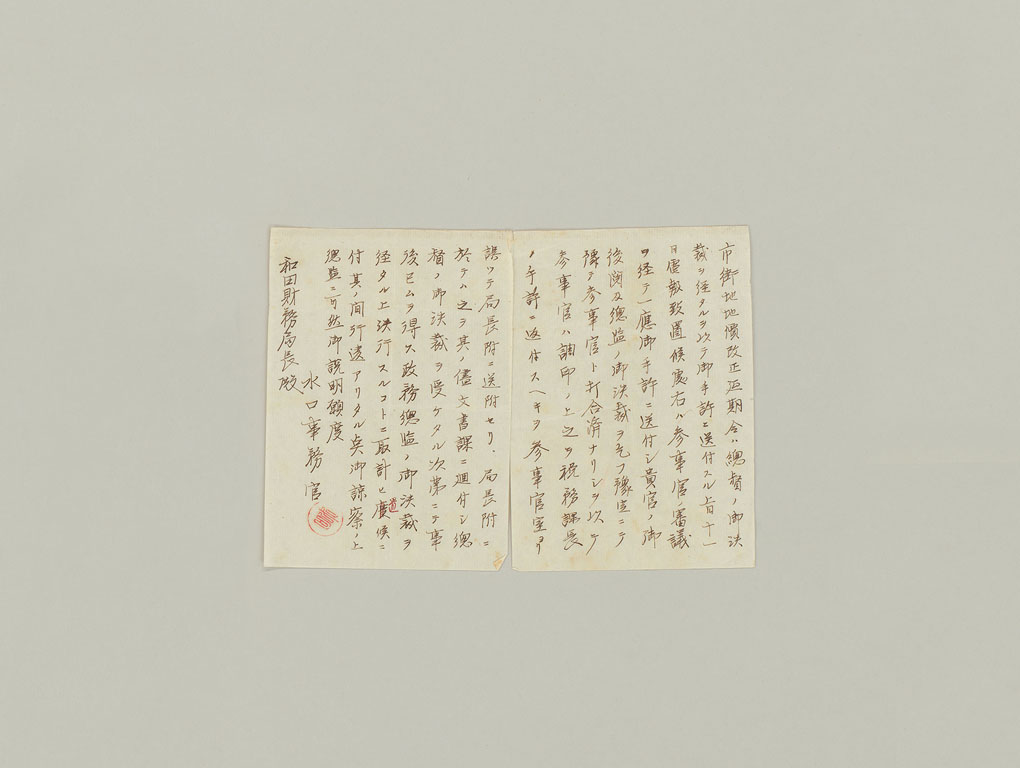 市街地地價改正延期令ハ總督ノ御決
裁ヲ経タルヲ以テ御手許ニ送付スル 十一
日 致置候處右ハ参事官ノ審議
ヲ経テ一應御手許ニ送付シ貴官ノ御
後閲及總監ノ御決裁ヲ乞フ豫定ニテ
豫テ参事官ト打合済ナリシヲ以テ
参事官ハ調印ノ上之ヲ税務課長
ノ手許ニ返付スヘキヲ参事官室ヨリ
誤ツテ局長附ニ送附セリ、局長附ニ
於テハ之ヲ其ノ儘文書課ニ廻付シ總
督ノ御決裁ヲ受ケタル次第ニテ事
後已ムヲ得ス政務總監ノ御決裁ヲ
経タル上決行スルコトニ取計ヒ度候ニ
付其ノ間行違アリタル点御諒察ノ上
總監ニ可然御説明願度
水口事務官
和田財務局長殿